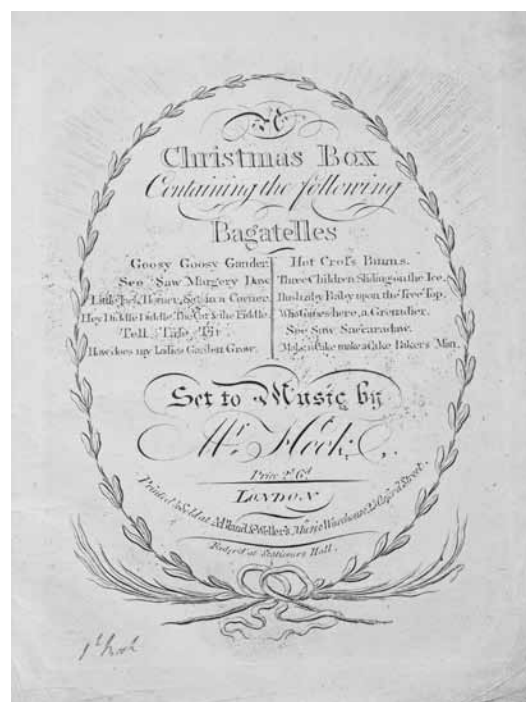 A
Christmas Box
Containing the following
Bagatelles
Goosy Goosy Gander.
See Saw Margery Daw
Little Jack Horner, Sat in a Corner.
Hey Diddle Diddle The Cat & the Fiddle.
Tell Tale Tit
How does my Ladies Garden Grow.
Hot Cross Bunns.
Three Children Sliding on the Ice.
Hush a by Baby upon the Tree Top.
Who Comes here, a Grenadier.
See Saw Saccaradaw.
Make a Cake make a Cake Bakers Man.
Set to Music by
Mr. Hook.
Price 2s. 6d.
LONDON
Printed & Sold at Bland & Weller's Music Warehouse 23 Oxford Street.
Enter'd at Stationers Hall.
1st Book